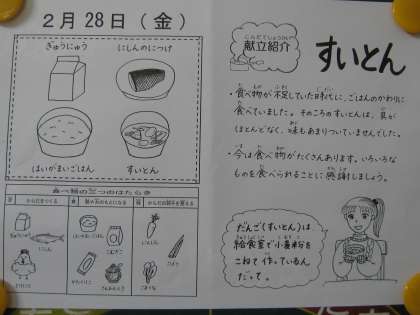 2月28日(金)
ぎゅうにゅう
にしんのにつけ
はいがまいごはん
すいとん
食べ物の三つのはたらき
からだをつくる
熱や力のもとになる
からだの調子を整える
ぎゅうにゅう
にんじん
こんだてしょうかい
献立紹介
すいとん
・食べ物が不足していた時代に、ごはんのかわりに
食べていました。そのころのすいとんは、具が
ほとんどなく、味もあまりついていませんでした。
・今は食べ物がたくさんあります。いろいろな
ものを食べられることに感謝しましょう。
だんご(すいとん)は
給食室で小麦粉を
こねて作っているん
だって。